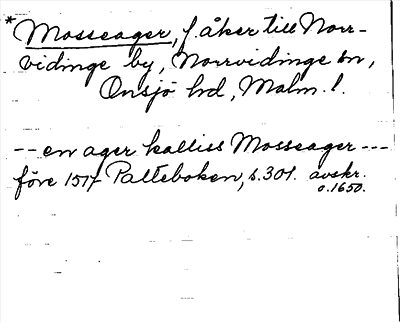 * Mosseager, f. åker till Norr-
vidinge by, Norrvidinge sn,
Onsjö hd, Malm. l.
-- en ager kalliss Mosseager ---
före 1517 Palteboken, s. 301. avskr.
o. 1650.